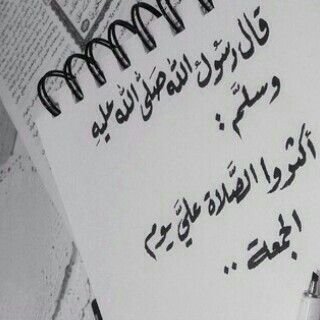 قال رسول الله صَلَّى الله عليهِ
وسلَّم :
أكثروا الصَّلاة عليَّ يوم
الجمعة ..